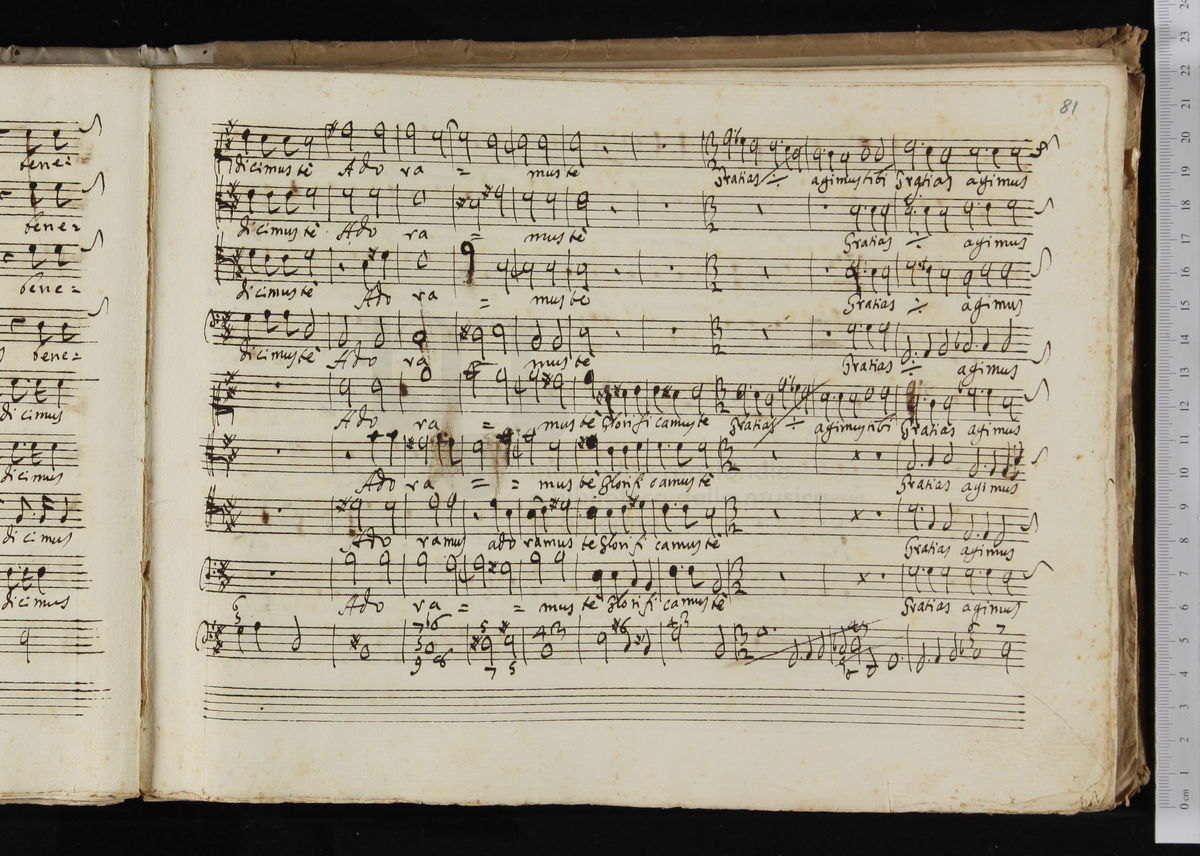 81
bene=
bene=
bene=
bene=
dicimus
dicimus
dicimus
dicimus
dicimus te Ado ra = mus te Gratias ÷ agimus tibi Gratias agimus
dicimus te Ado ra = mus te Gratias ÷ agimus
dicimus te Ado ra = mus te Gratias ÷ agimus
dicimus te Ado ra mus te Gratias ÷ agimus
Ado ra = mus te Glorifi camus te Gratias ÷ agimus tibi Gratias agimus
Ado ra = = mus te Glorifi camus te Gratias agimus
Ado ramus ado ramus te Glorifi camus te Gratias agimus
Ado ra = = mus te Glorifi camus te Gratias agimus